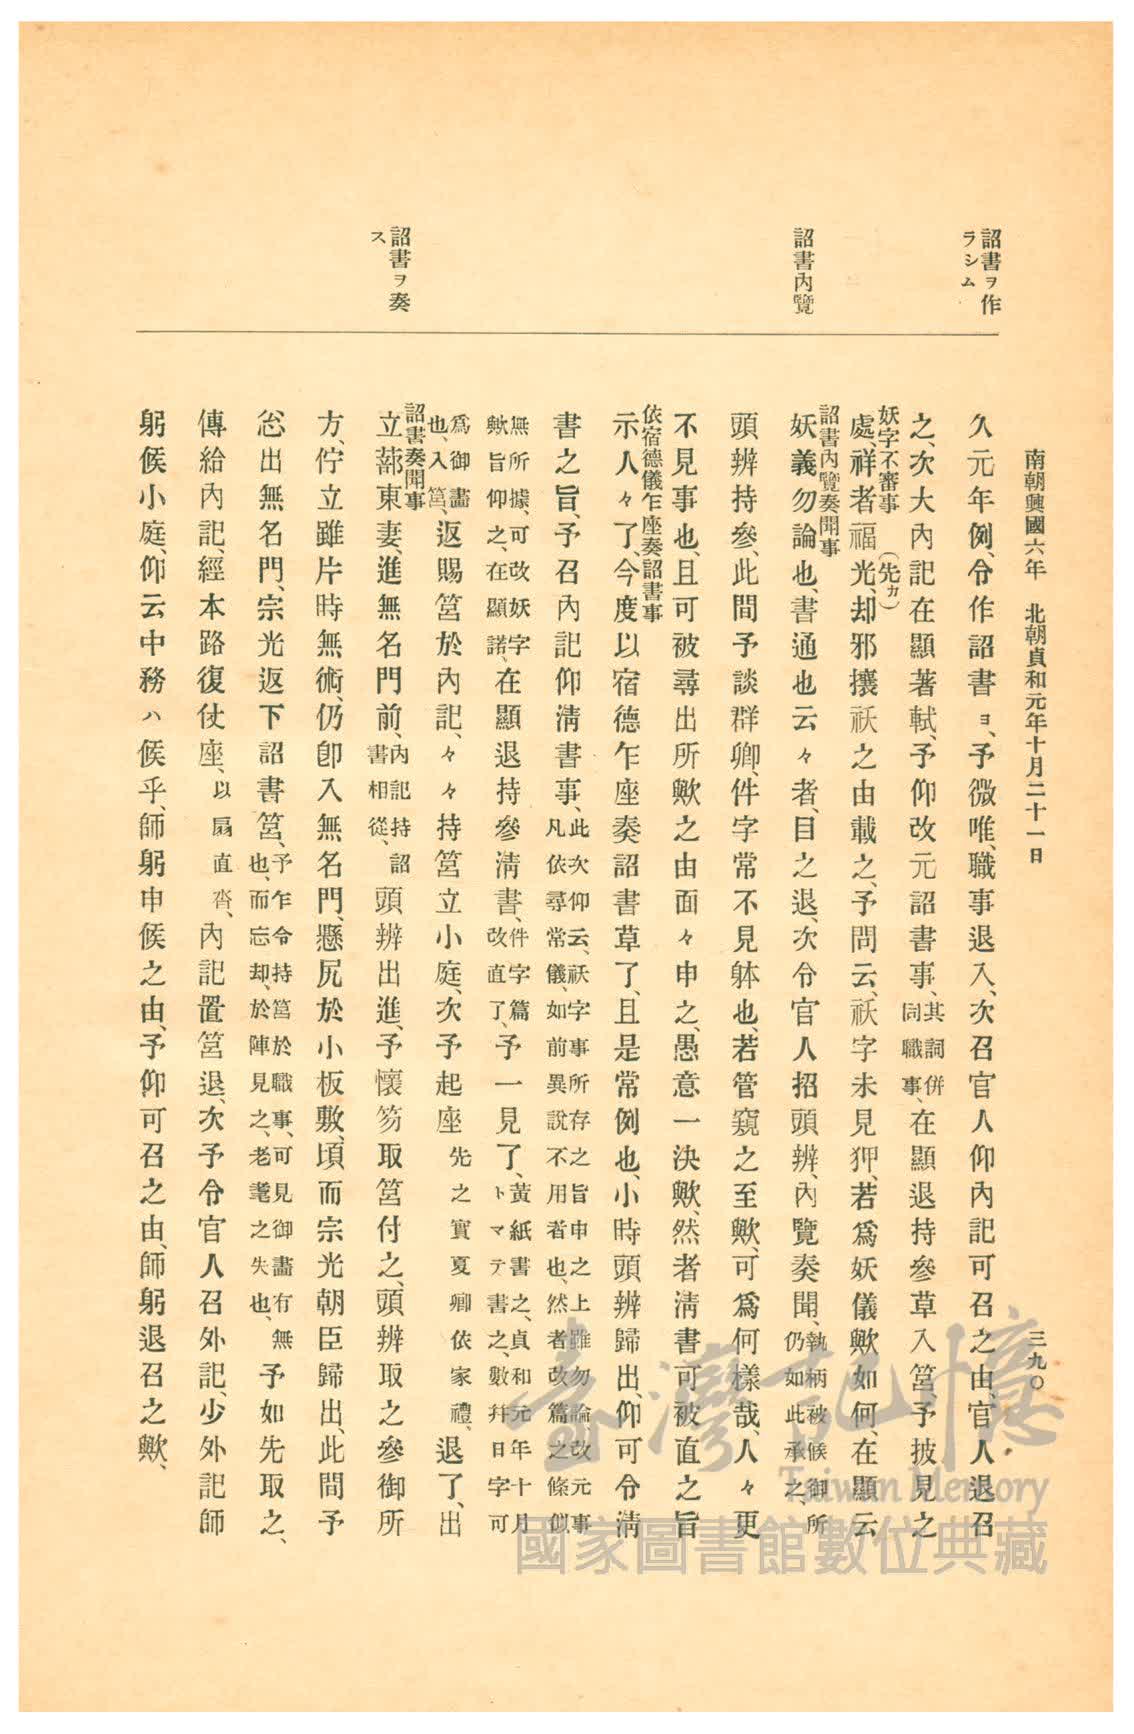 南朝興國六年　北朝貞和元年十月二十一日
三九〇
詔書ヲ作
ラシム
詔書內覽
詔書ヲ奏
ス
久元年例、令作詔書ヨ、予微唯、職事退入、次召官人仰內記可召之由、官人退召
之、次大內記在顯著軾、予仰改元詔書事、其詞併同職事、在顯退持參草入筥、予披見之
妖字不審事
處、祥者福光、却邪攘祅之由載之、予問云、祅字未見狎、若爲妖儀歟如何、在顯云
（先カ）
詔書內覽奏聞事
妖義勿論也、書通也云々者、目之退、次令官人招頭辨、內覽奏聞、執柄被候御所仍如此承之、
頭辨持參、此間予談群卿、件字常不見躰也、若管窺之至歟、可爲何樣哉、人々更
不見事也、且可被尋出所歟之由面々申之、愚意一決歟、然者淸書可被直之旨
依宿德儀乍座奏詔書事
示人々了、今度以宿德乍座奏詔書草了、且是常例也、小時頭辨歸出、仰可令淸
書之旨、予召內記仰淸書事、此次仰云、祅字事所存之旨申之上雖勿論改元事凡依尋常儀、如前異說不用者也、然者改篇之條似
無所據、可改妖字歟旨仰之、在顯諾、在顯退持參淸書、件字篇改直了、予一見了、黃紙書之、貞和元年十月トマテ書之、數幷日字可
爲御畫也、入筥、返賜筥於內記、々々持筥立小庭、次予起座先之實夏卿依家禮、退了、出
詔書奏聞事
立蔀東妻、進無名門前、內記持詔書相從、頭辨出進、予懷笏取筥付之、頭辨取之參御所
方、佇立雖片時無術、仍卽入無名門、懸尻於小板敷、頃而宗光朝臣歸出、此間予
忩出無名門、宗光返下詔書筥、予乍令持筥於職事、可見御畫有無也、而忘却、於陣見之、老耄之失也、予如先取之、
傳給內記、經本路復仗座、以扇直沓、內記置筥退、次予令官人召外記、少外記師
躬候小庭、仰云中務ハ候乎、師躬申候之由、予仰可召之由、師躬退召之歟、
臺灣記憶
Taiwan Memory
國家圖書館數位典藏